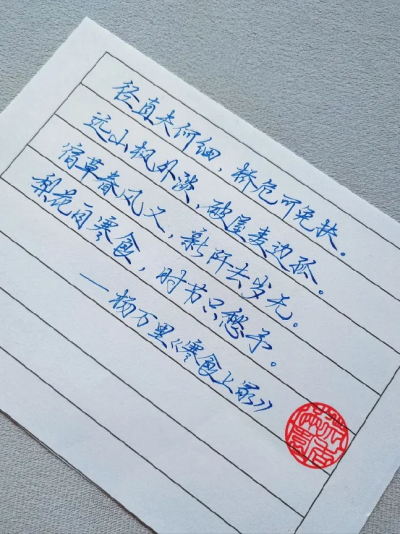 径直夫何细，桥危可免扶。
远山枫外淡，破屋麦边孤。
宿草春风又，新阡去岁无。
梨花自寒食，时节只愁予。
—杨万里《寒食上冢》